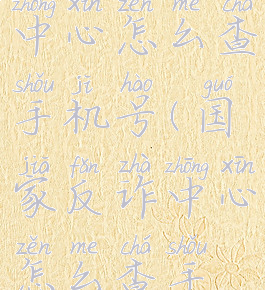 zhōng xīn zěn me chá
中心怎么查
shǒu jī hào guó
手机号(国
jiā fǎn zhà zhōng xīn
家反诈中心
zěn me chá shǒu
怎么查手